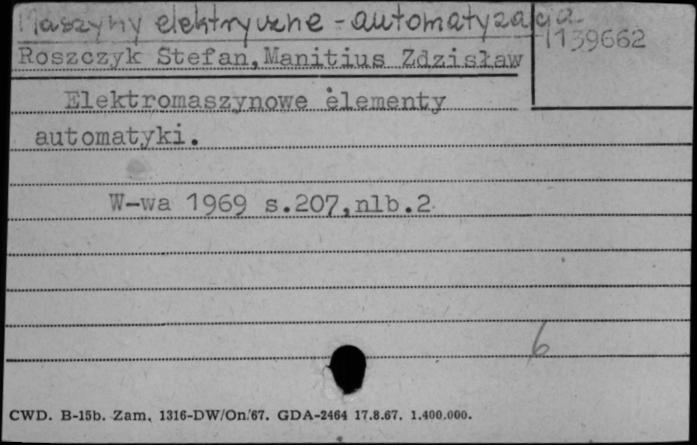 Maszyny elektryczne - automatyzacja
1139662
Roszczyk Stefan,Manitius Zdzisław
Elektromaszynowe elementy
automatyki.
W-wa 1969 s.207,nlb.2
6
CWD. B-15b. Zam. 1316-DW/On/67. GDA-2464 17.8.67. 1.400.000.